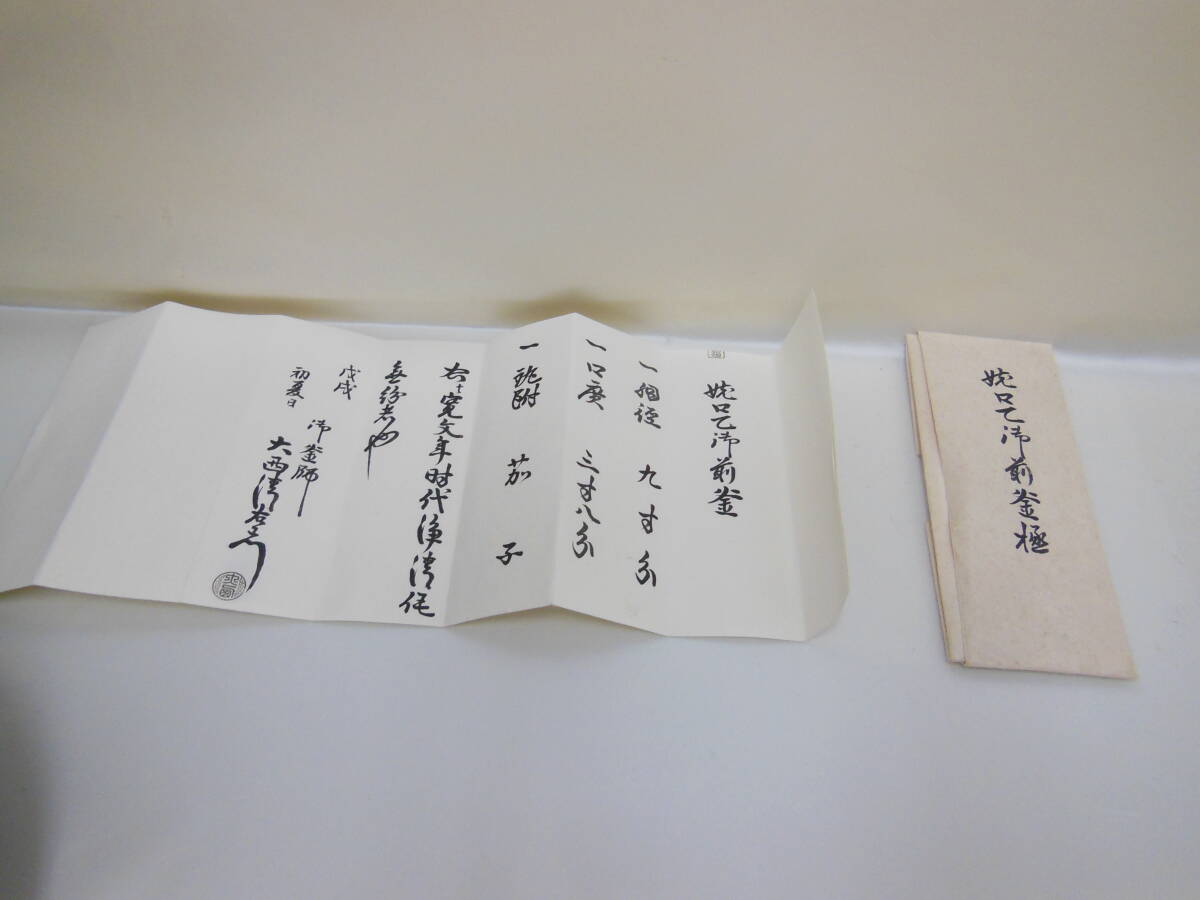 姥口乙御前釜極
姥口乙御前釜
一胴径 九寸
一口廣 三寸八分
一鐶附 茄子
右ハ寛文年時代浄清作
無紛者也
戊戌
初夏日
御釜師
大西清右衛門